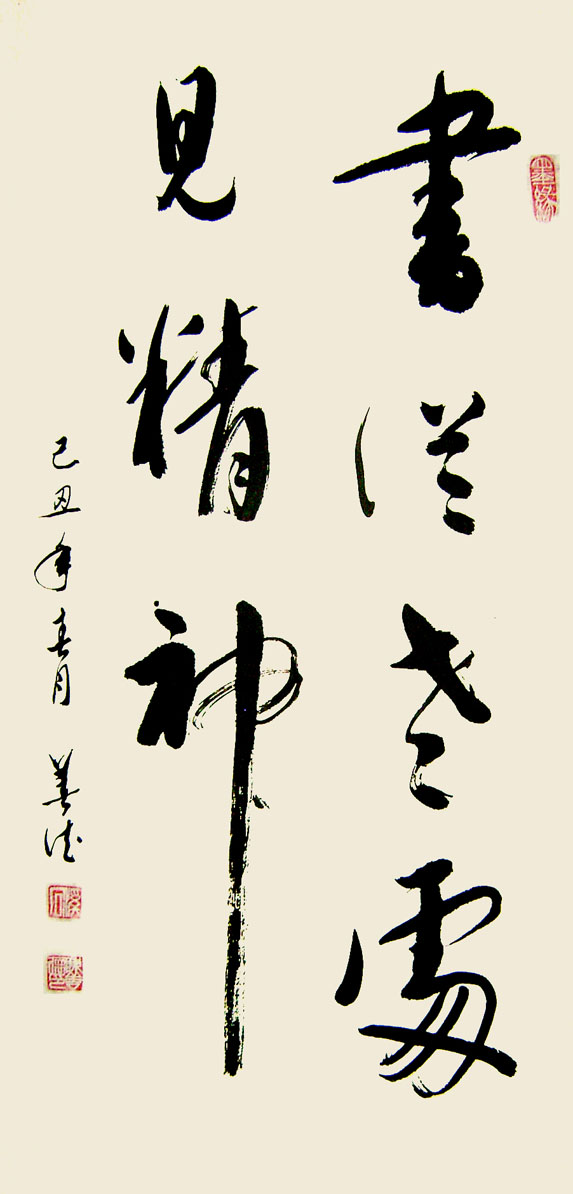 書從老處
見精神
己丑年春月